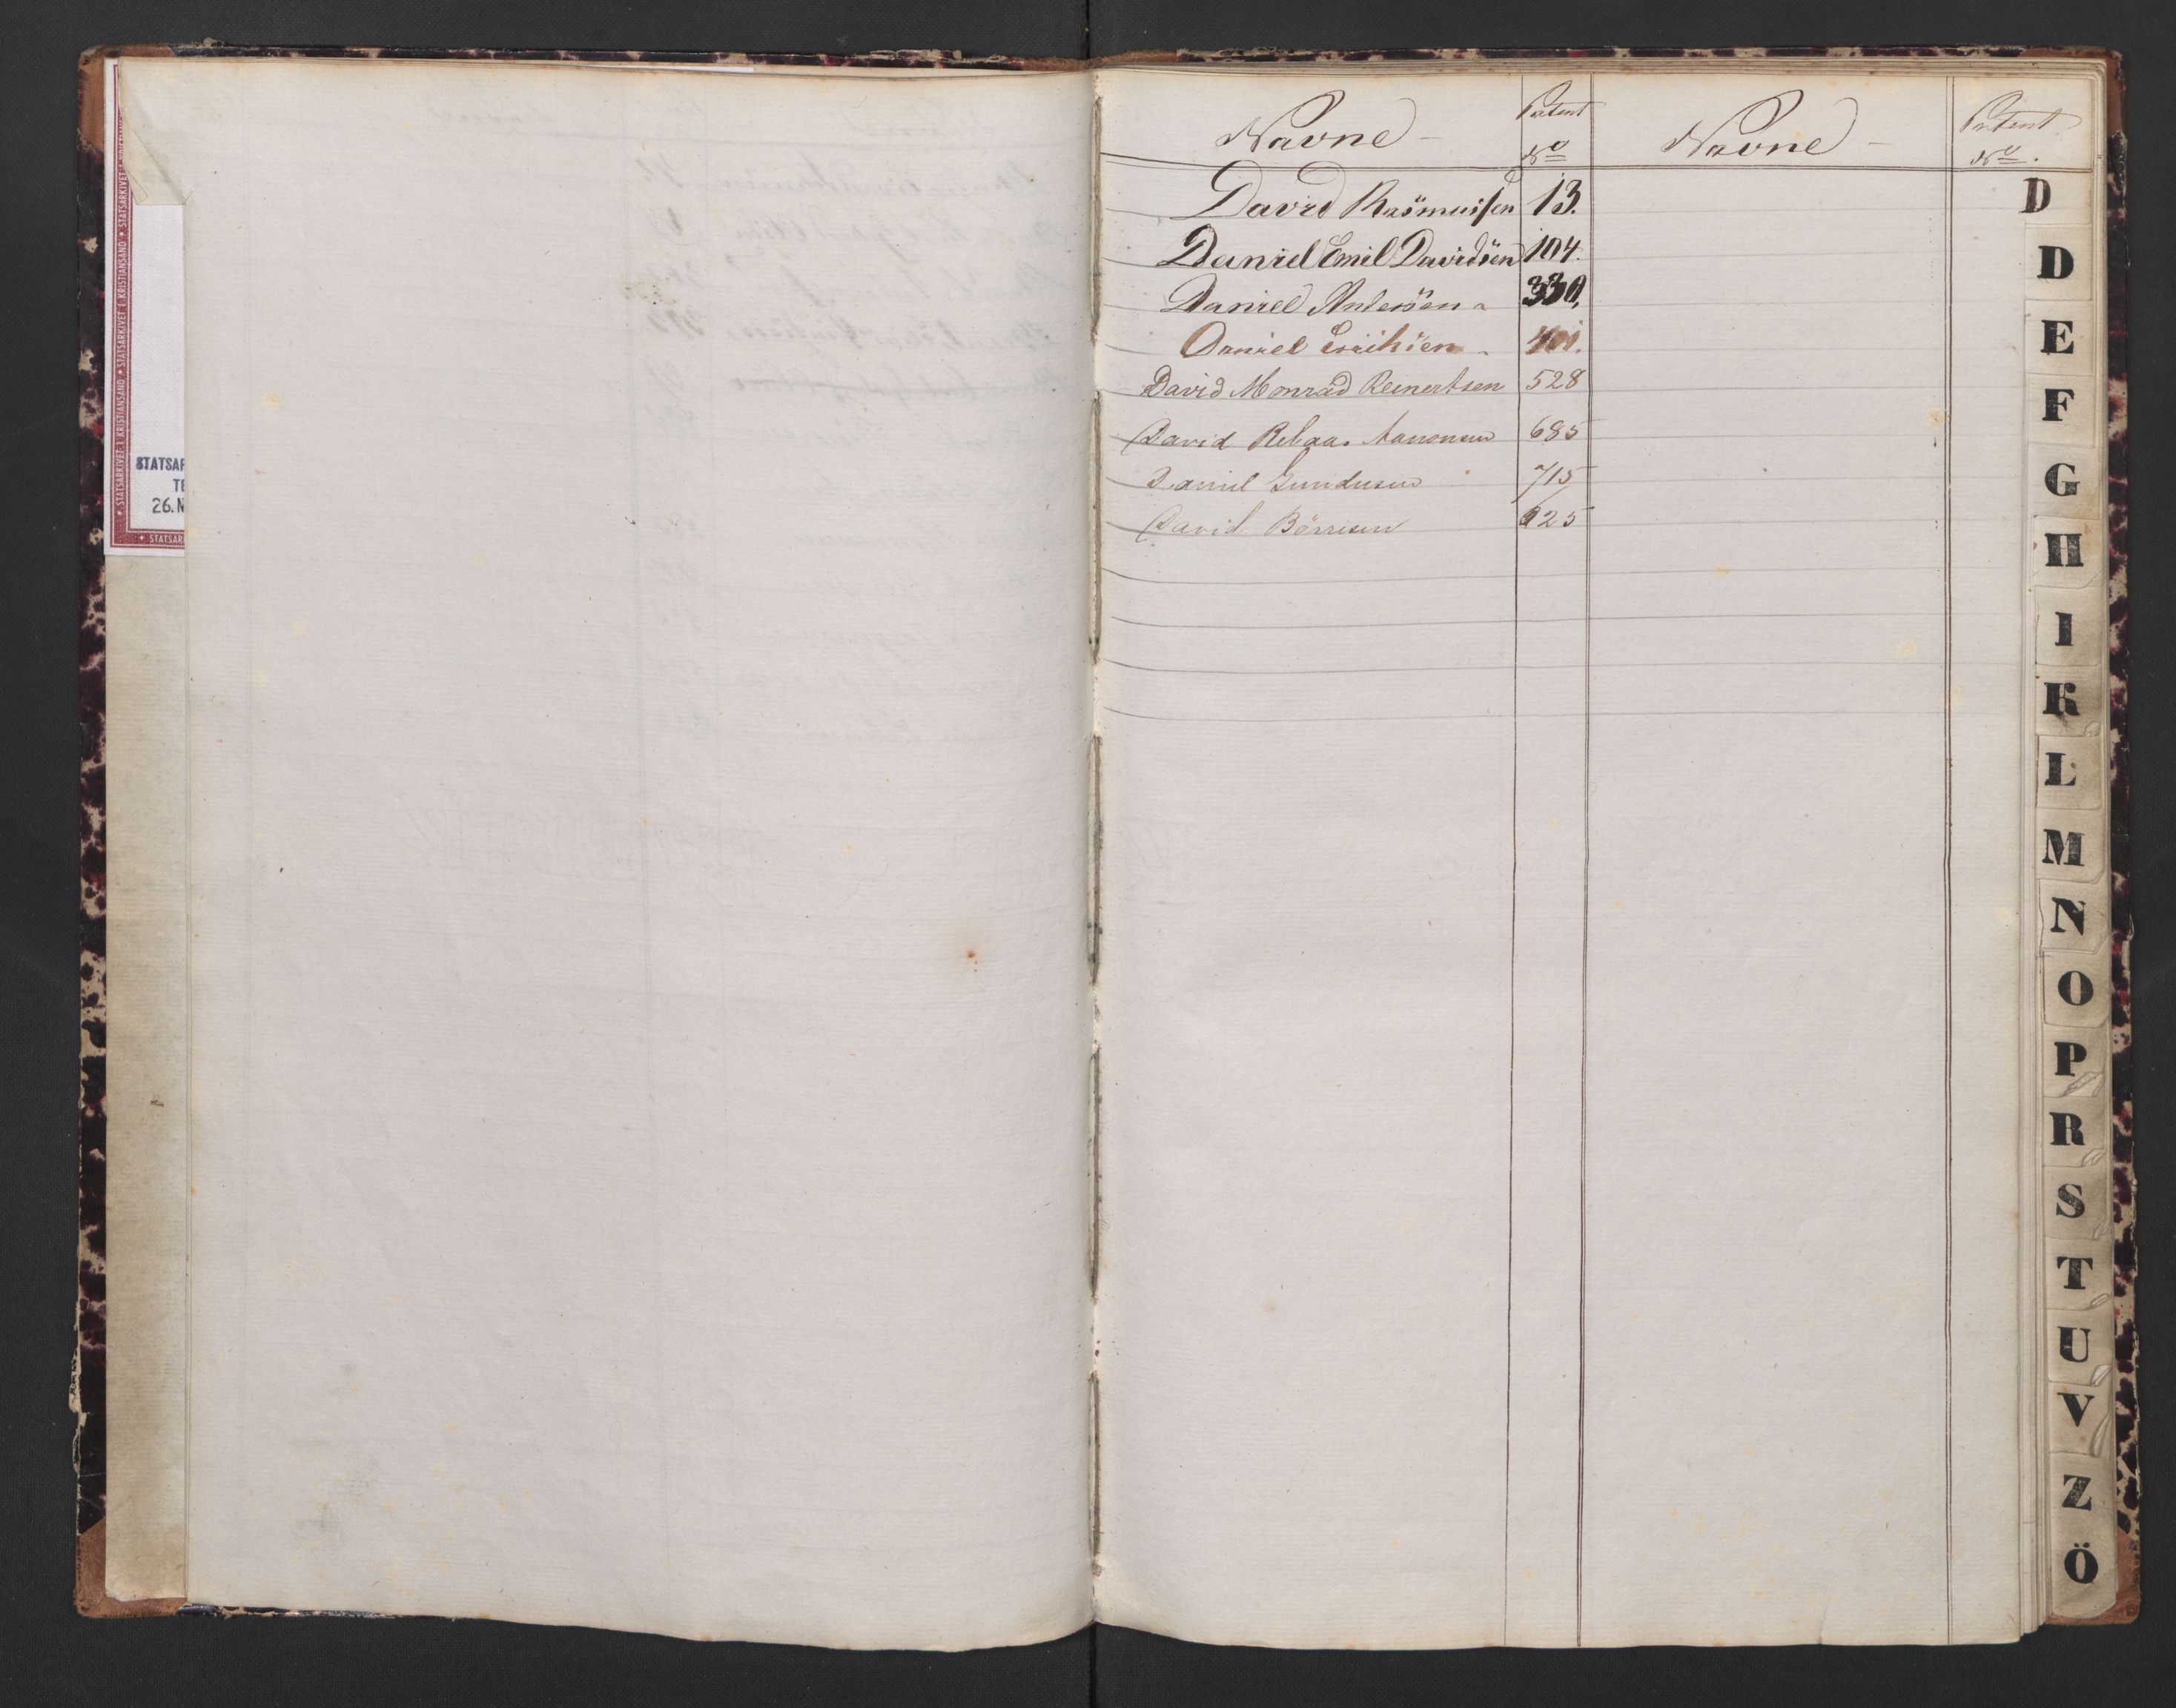 STATSARKIVET I KRISTIANSAND * STATSARKIVET I KRISTIANSAND * STATSARKIVET
STATSAR
TE
26.N
* STATSAR
Navne Patent No Navne Patent No.
David Rasmussen 13.
Daniel Emil Davidsen 104.
Daniel Andersen 330.
Daniel 401.
David Monrad Reinertsen 528
David Aanonsen 685
Daniel Gundersen 715
David Börresen 825
D
D
E
F
G
H
I
K
L
M
N
O
P
R
S
T
U
V
Z
Ö